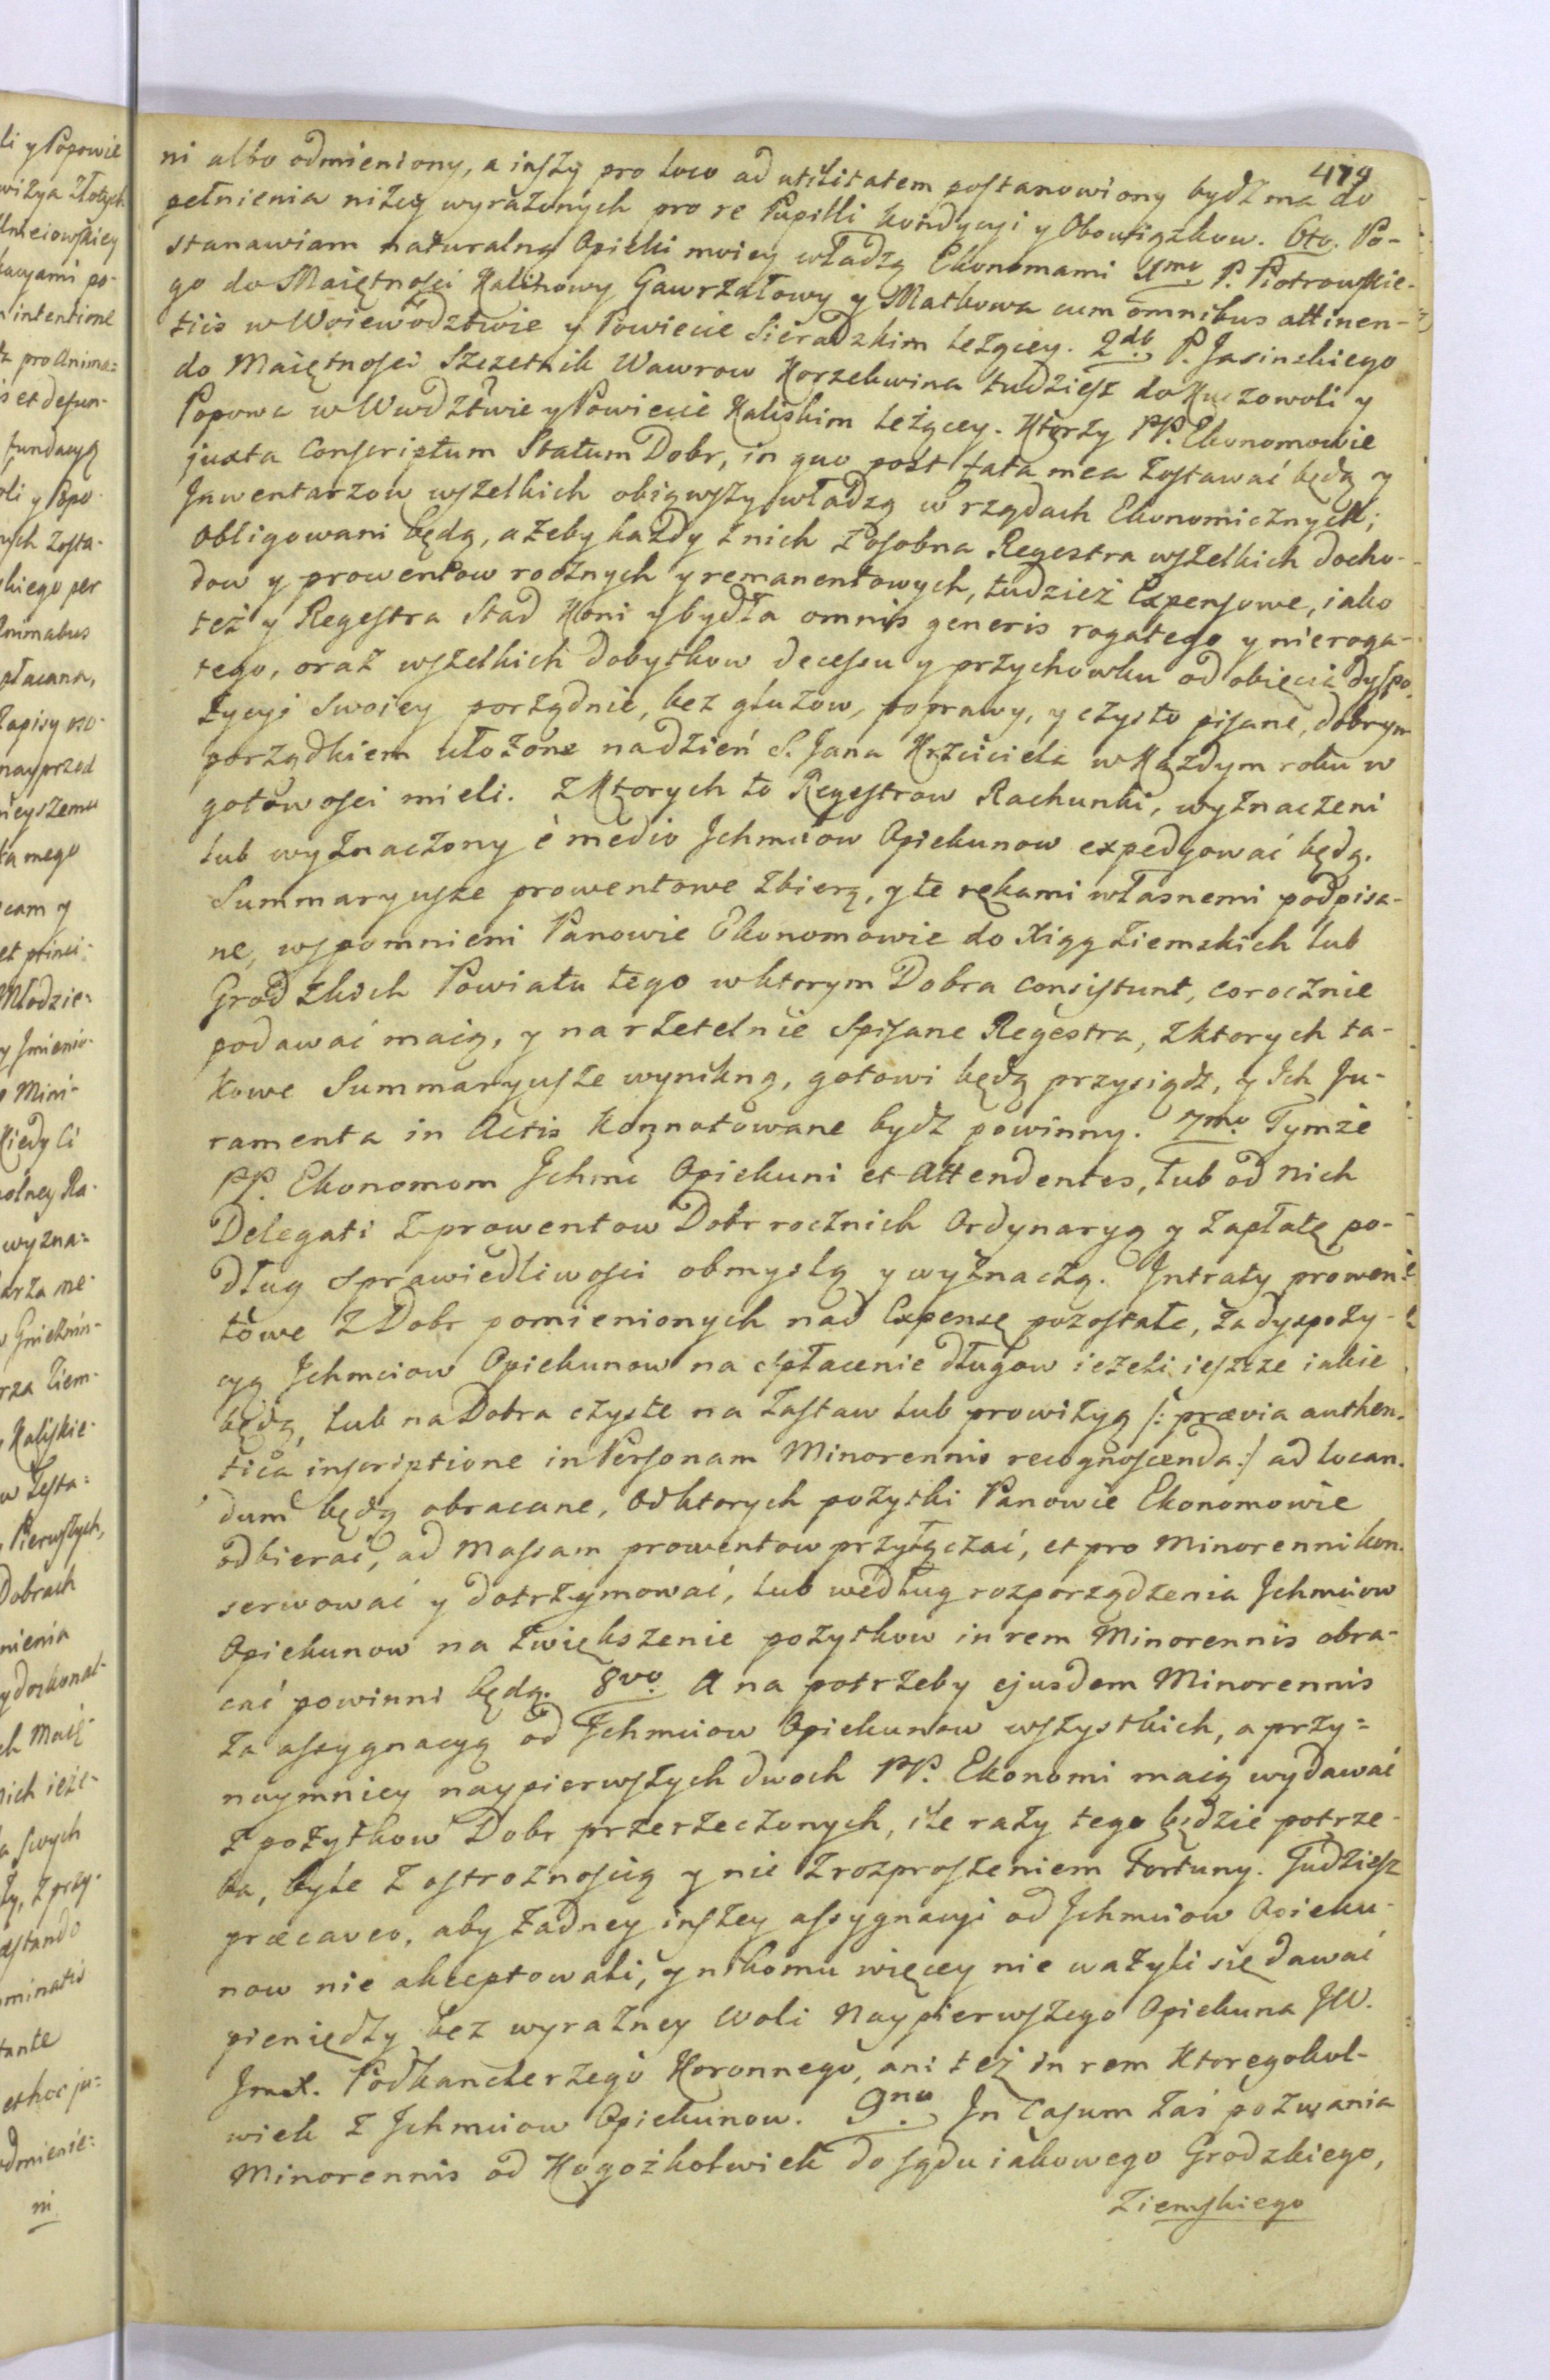 479
ni albo odmieniony, a inszy pro loco ad utilitatem postanowiony bydź ma do
pełnienia niżey wyrażonych pro re Pupilli kondycyi y Obowiązkow. 6to. Po-
stanawiam naturalną Opieki moiey władzą Ekonomami 1mo P. Piotrowskie-
go do Maiętności Kalinowy Gawrzałowy y Małkowa cum omnibus attinen-
tiis w Woiewodztwie y Powiecie Sieradzkim leżącey. 2do P. Jasinskiego
do Maiętności Szczetnik Wawrow Korzekwina tudziesz do Kuczowoli y
Popowa w Wwdztwie y Powiecie Kaliskim leżącey. Ktorzy PP. Ekonomowie
juxta Conscriptum Statum Dobr, in quo post fata mea zostawać będą y
Inwentarzow wszelkich obiąwszy władzą w rządach Ekonomicznych;
obligowani będą, ażeby każdy z nich z osobna Regestra wszelkich docho-
dow y prowentow rocznych y remanentowych, tudzież Expensowe, iako
też y Regestra Stad Koni y bydła omnis generis rogatego y nieroga-
tego, oraz wszelkich dobytkow decessu y przychowku od obięcia dyspo-
zycyi swoiey porządnie, bez gluzow, poprawy, y czysto pisane, dobrym
porządkiem ułożone na dzień S. Jana Krzciciela w Każdym roku w
gotowości mieli. Z Ktorych to Regestrow Rachunki, wyznaczeni
lub wyznaczony è medio Jchmciow Opiekunow expedyować będą.
Summaryusze prowentowe zbierą, y te rękami własnemi podpisa-
ne, wspomnieni Panowie Ekonomowie do Xiąg Ziemskich lub
Grodzkich Powiatu tego w ktorym Dobra consistunt, corocznie
podawać maią, y na rzetelnie spisane Regestra, z ktorych ta-
kowe Summaryusze wynikną, gotowi będą przysiądz, y Ich Ju-
ramenta in Actis Konnotowane bydź powinny. 7mo. Tymże
PP. Ekonomom Jchmć Opiekuni et Attendentes, lub od nich
Delegati z prowentow Dobr rocznich Ordynaryą y zapłatę po-
dług sprawiedliwości obmyślą y wyznaczą. Intraty prowen-
towe z Dobr pomienionych nad Expensę pozostałe, za dyspozy-
cyą Jchmciow Opiekunow na spłacenie długow ieżeli ieszcze iakie
będą, lub na Dobra czyste na zastaw lub prowizyą /: prævia authen-
tica inscriptione in Personam Minorennis recognoscenda :/ ad locan-
dum będą obracane, od ktorych pożytki Panowie Ekonomowie
odbierać, ad Massam prowentow przyłączać, et pro Minorenni kon-
serwować y dotrzymować, lub według rozporządzenia Jchmciow
Opiekunow na zwiększenie pożytkow in rem Minorennis obra-
cać powinni będą. 8vo. A na potrzeby ejusdem Minorennis
za assygnacyą od Jchmciow Opiekunow wszystkich, a przy=
naymniey naypierwszych dwoch PP. Ekonomi maią wydawać
z pożytkow Dobr przerzeczonych, ile razy tego będzie potrze-
ba, byle z ostrożnością y nie z rozproszeniem Fortuny. Tudziesz
præcaveo, aby żadney inszey assygnacyi od Jchmciow Opieku-
now nie akceptowali, y nikomu więcey nie ważyli się dawać
pieniędzy bez wyrażney Woli Naypierwszego Opiekuna JW.
Jmci. Podkanclerzego Koronnego, ani też in rem Ktoregokol-
wiek z Jchmciow Opiekunow. 9no. In Casum zaś pozwania
Minorennis od Kogożkolwiek do sądu iakowego Grodzkiego,
Ziemskiego